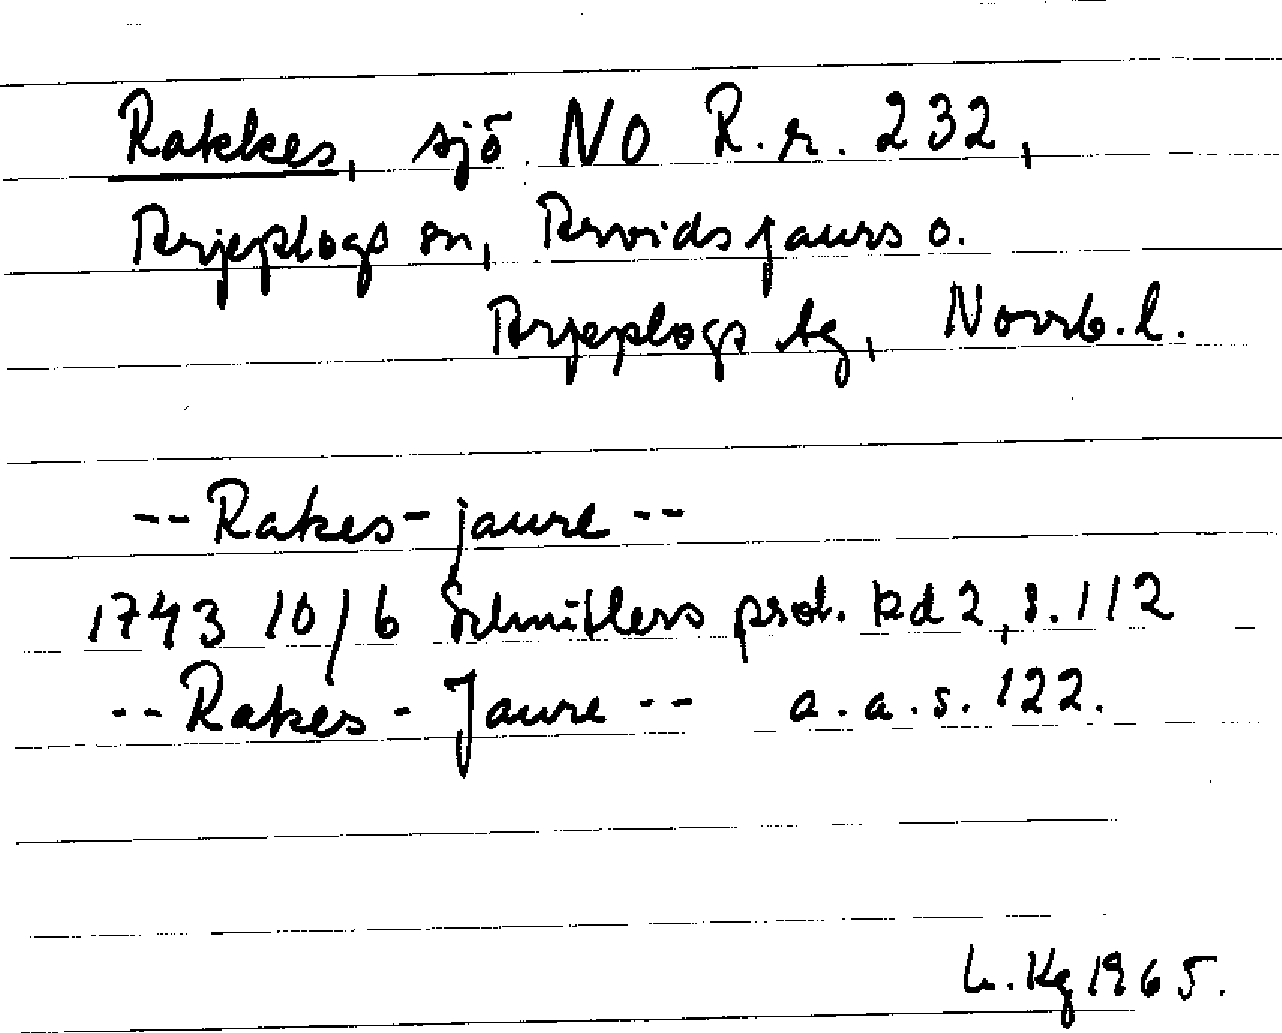 Rakkes, sjö NO R.r. 232,
Arjeplogs sn, Arvidsjaurs o.
Arjeplogs tg, Norrb. l.
-- Rakes-jaure --
1743 10/6 Schnitlers prot. bd 2, s. 112
-- Rakes-Jaure -- a.a.s. 122.
L. Kg 1965.